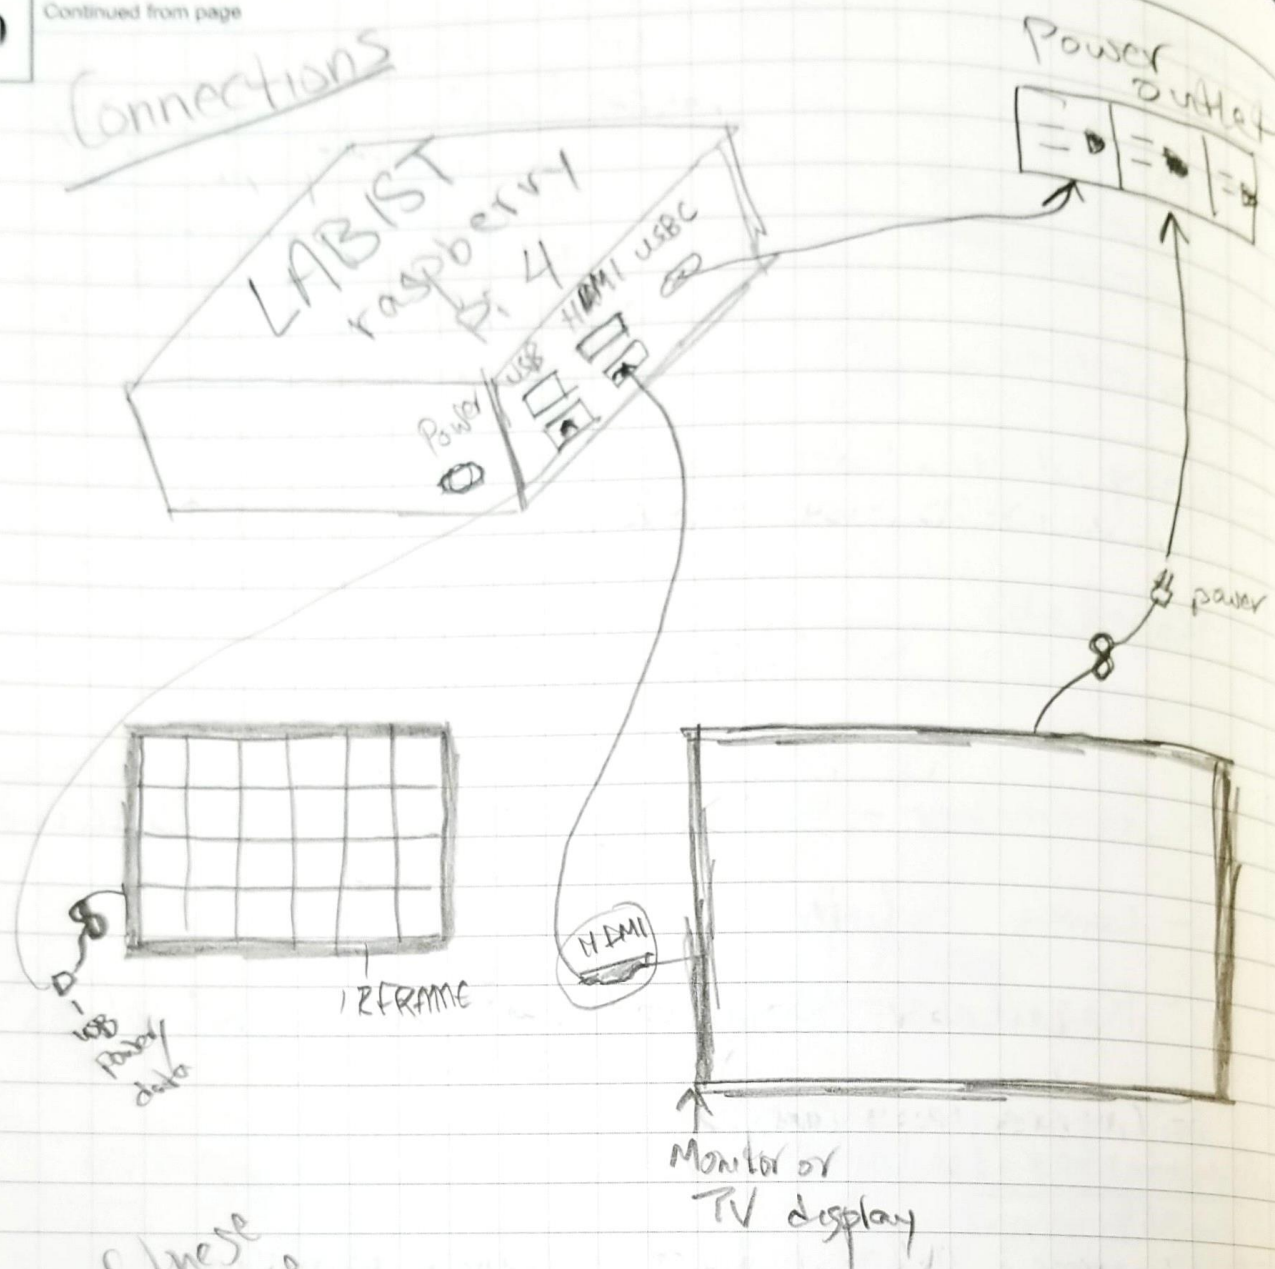 Continued from page
Connections
Power
outlet
LABIST
raspberry
pi 4
USBC
HDMI
USB
Power
power
HDMI
IRFRAME
USB
Power/
data
Monitor or
TV display